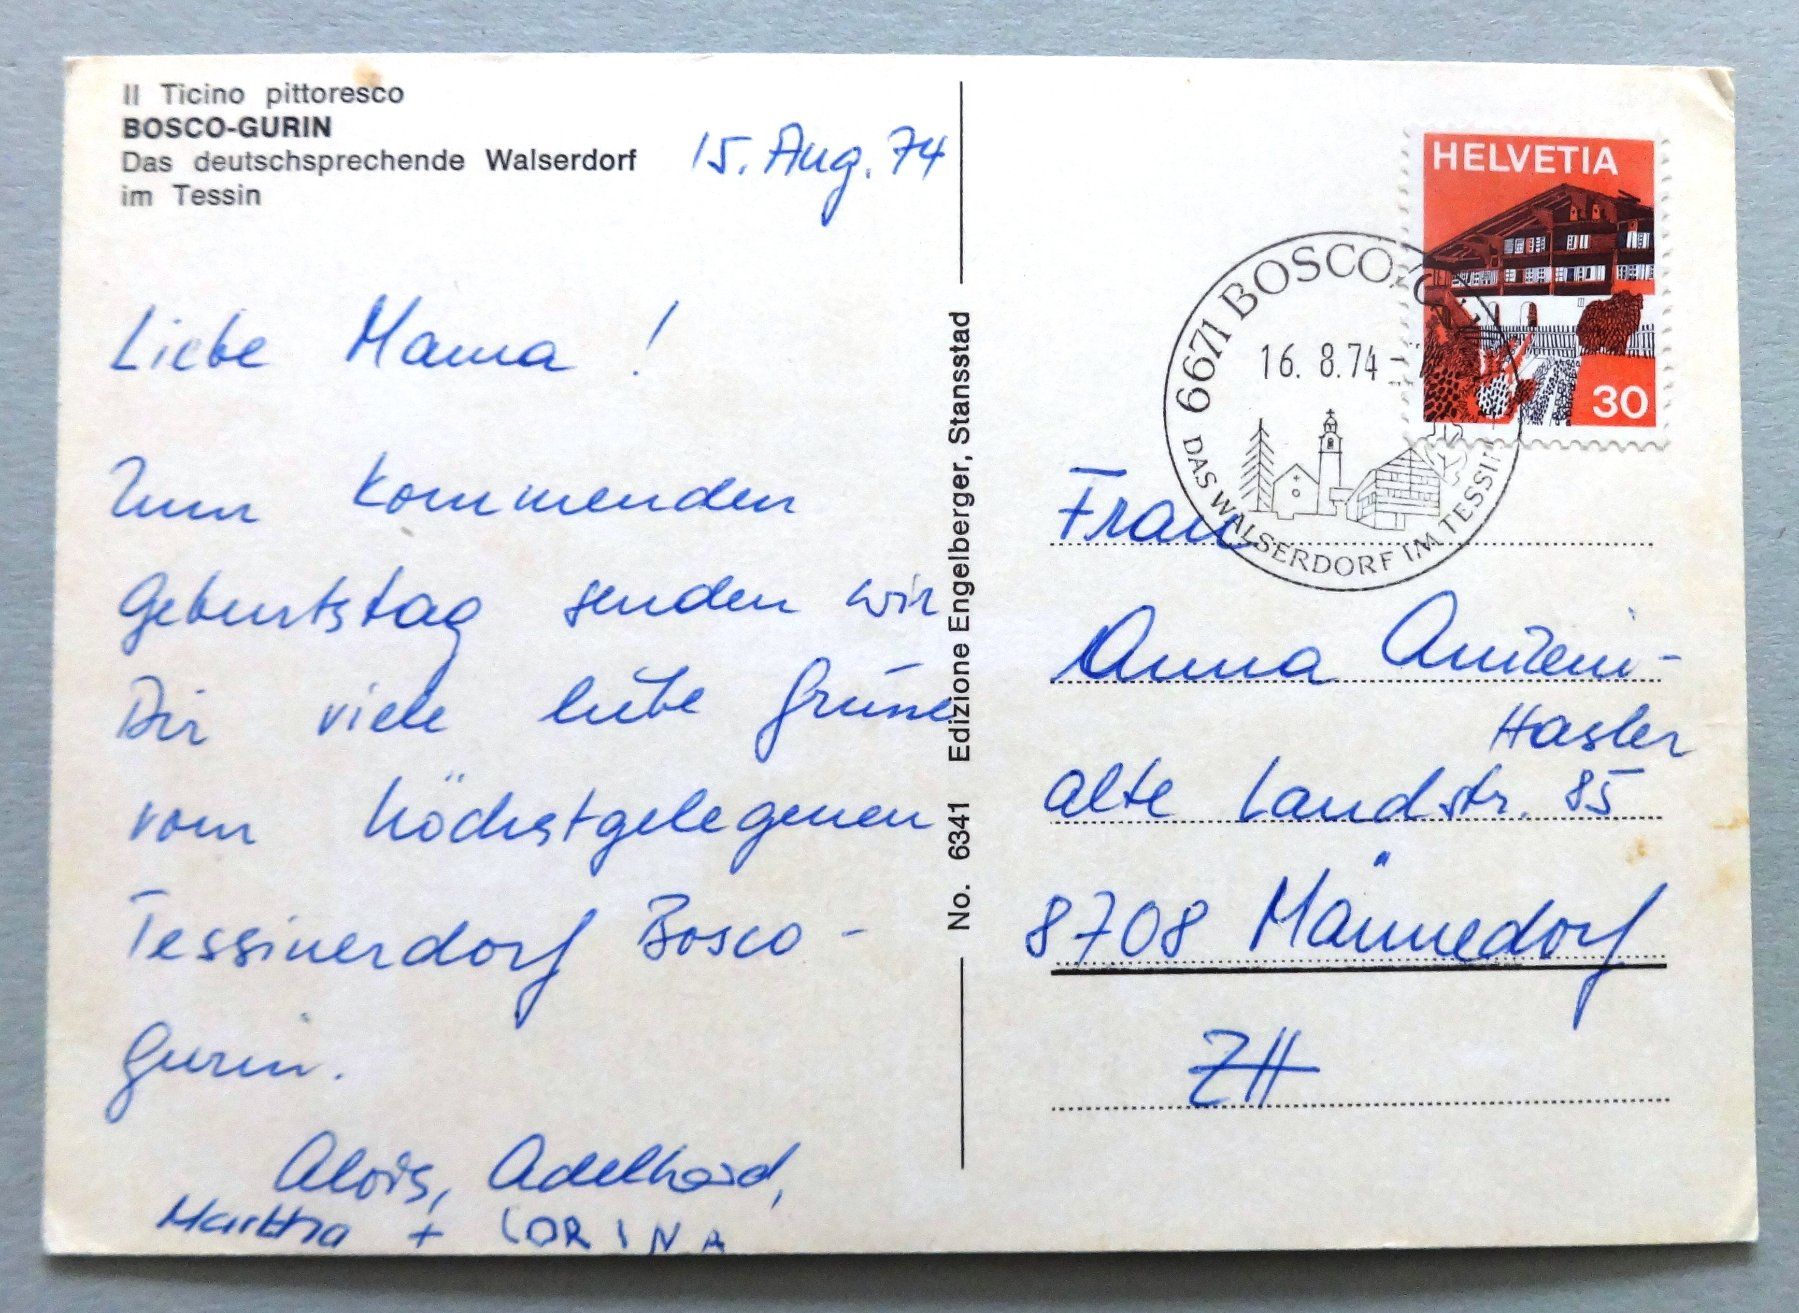 Il Ticino pittoresco
BOSCO-GURIN
Das deutschsprechende Walserdorf
im Tessin
15. Aug. 74
Liebe Mama !
Zum kommenden
Geburtstag senden wir
Dir viele liebe Grüsse
vom höchstgelegenen
Tessinerdorf Bosco-
Gurin.
Alois, Adelheid,
Martha + CORINA
No. 6341 Edizione Engelberger, Stansstad
HELVETIA
30
6671 BOSCO-G
16. 8.74-
DAS WALSERDORF IM TESSIN
Frau
Anna
Hasler
alte Landstr. 85
8708 Männedorf
ZH